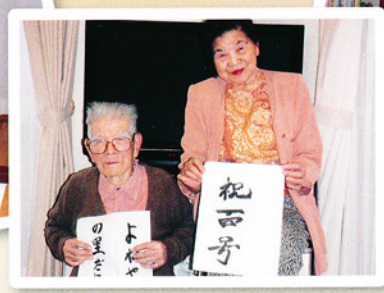 祝百号
よねや
の里だ